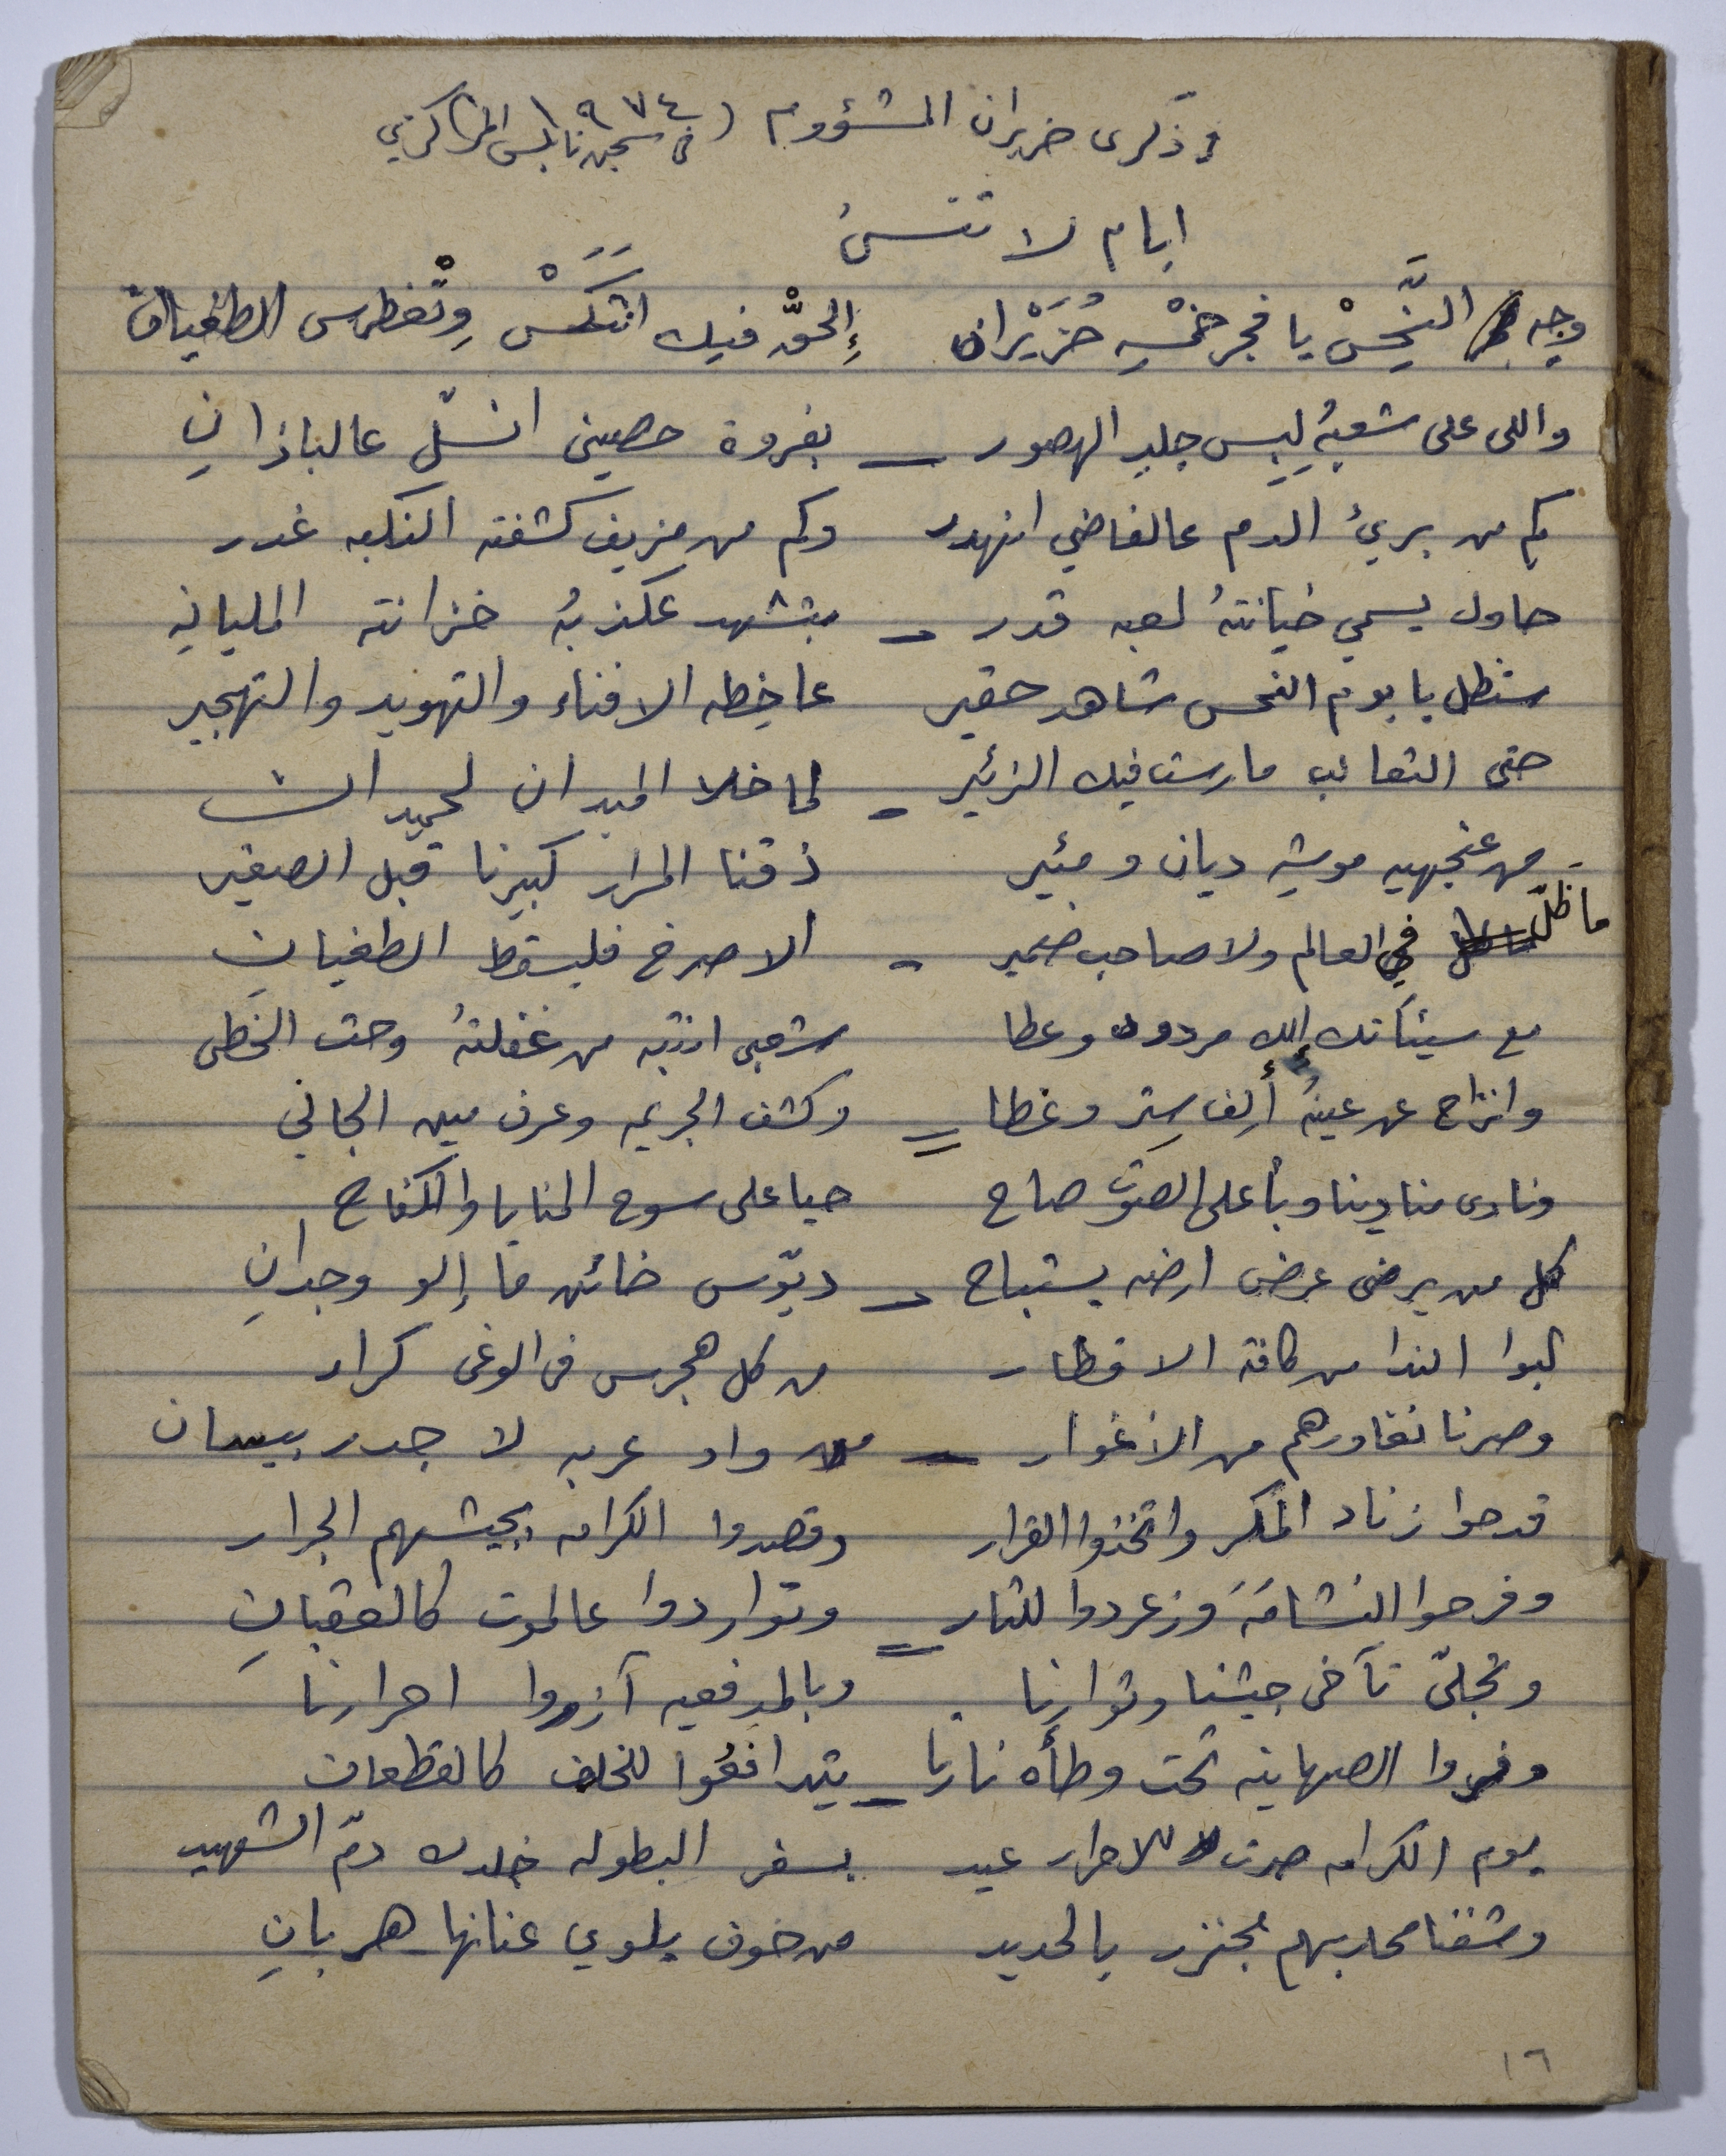 وذكرى حزيران المشؤوم (١٩٧٤
في سجن نابلس المركزي
ايام لا تنسىُ
وجه النَّحِسْ يا فجر خمْسِه حُزَيْران إِلحقّْ فيك انتَكَسْ وِتْغطرس الطغيان
واللى على شعبهُ لِبِس جلدِ الهصور – بفروة حصيني انسلّ عالباذانِ
كم من بريئ الدم عالفاضي انهدر وكم من مزيف كشفته النكبه غدر
حاول يسمي خيانتهُ لعبه قدر – بتشهد عكذبهُ خزانته المليانهِ
ستظل يا يوم النحس شاهد حقير عا خِطه الافناء والتهويد والتهجير
حتى الثعالب مارست فيك الزئير – لما خلا الميدان لحميدان
من عنجهيه موشيه ديان ومئير ذقنا المرار كبيرنا قبل الصغير
ما ظلّ في العالم ولا صاحب ضمير – الا صرخ فليسقط الطغيانِ
مع سيئآتك إلك مردود وعطا شعبي انتبه من غفلتهُ وحث الخطى
وانزاح عن عينهُ أَلِف سِتر وغطا = وكشف الجريمه وعرف مين الجاني
ونادى منادينا وبأعلى الصوت صاح حيا على سوح المنايا والكفاح
كل من يرضى عرض ارضه يستباح – ديّوس خائن ما إلو وجدانِ
لبوا الندا من كافة الاقطار من كل هجرس في الوغى كرار
وصرنا نغاورهم من الأغوار – من واد عربه لا جدر بيسان
قدحوا زناد المكر واتخذوا القرار وقصدوا الكرامه بجيشهم الجرار
وفرحوا النشامَهَ وزغردوا للثار = وتواردوا عالموت كالعقبانِ
وتجلىّ تآخى جيشنا وثوارنا وبالمدفعيه آزروا احرارنا
وفروا الصهاينه تحت وطأه نارنا – يتدافعُوا للخلف كالقطعان
يوم الكرامه صرت للاحرار عيد بسفر البطوله خلدك دمّ الشهيد
وشفنا محاربهم مجنزر بالحديد من خوف يلوي عنانها هربانِ
١٦